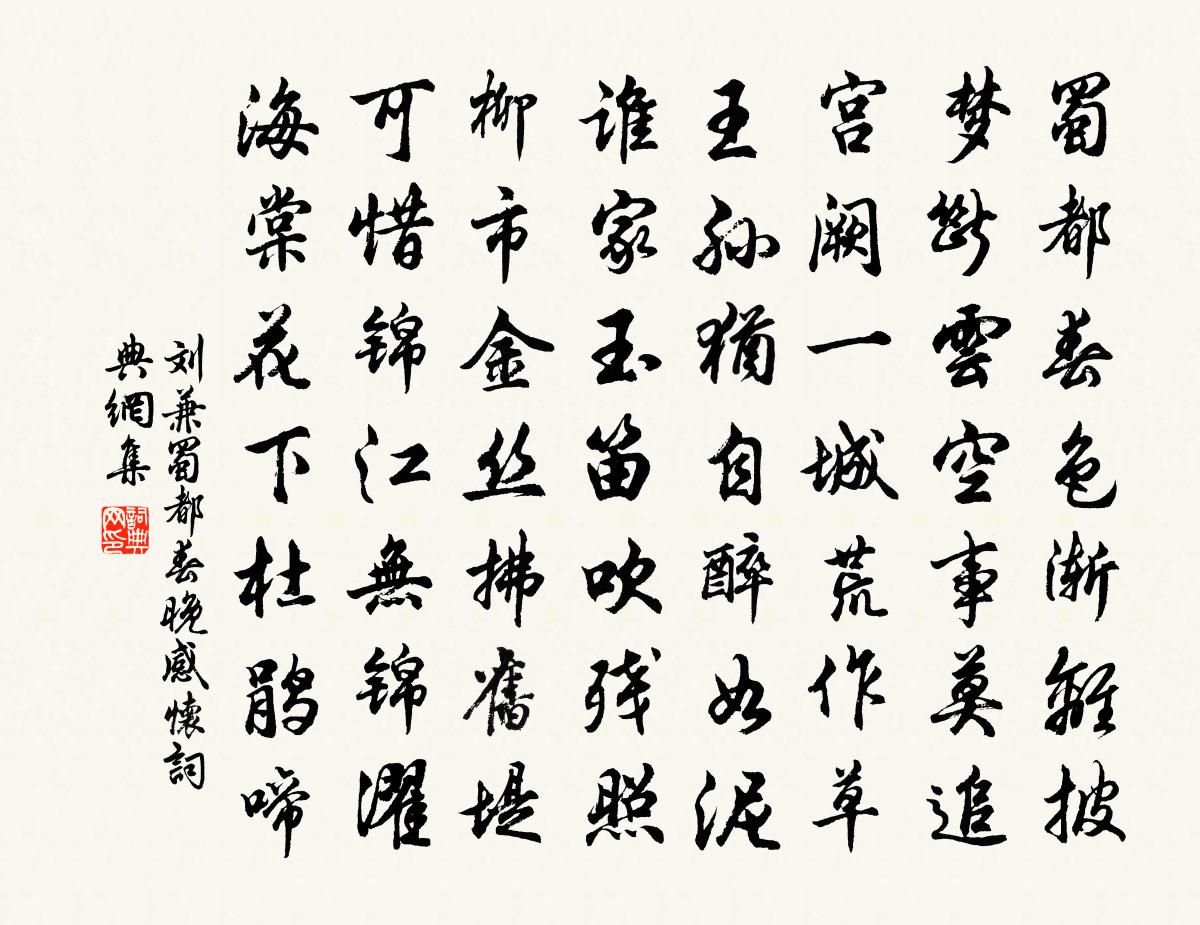 蜀都春色渐離披
梦斷雲空事莫追
宫阙一城荒作草
王孙猶自醉如泥
谁家玉笛吹残照
柳市金丝拂舊堤
可惜锦江無锦濯
海棠花下杜鹃啼
刘兼蜀都春晚感懷詞
典網集
詞典网印